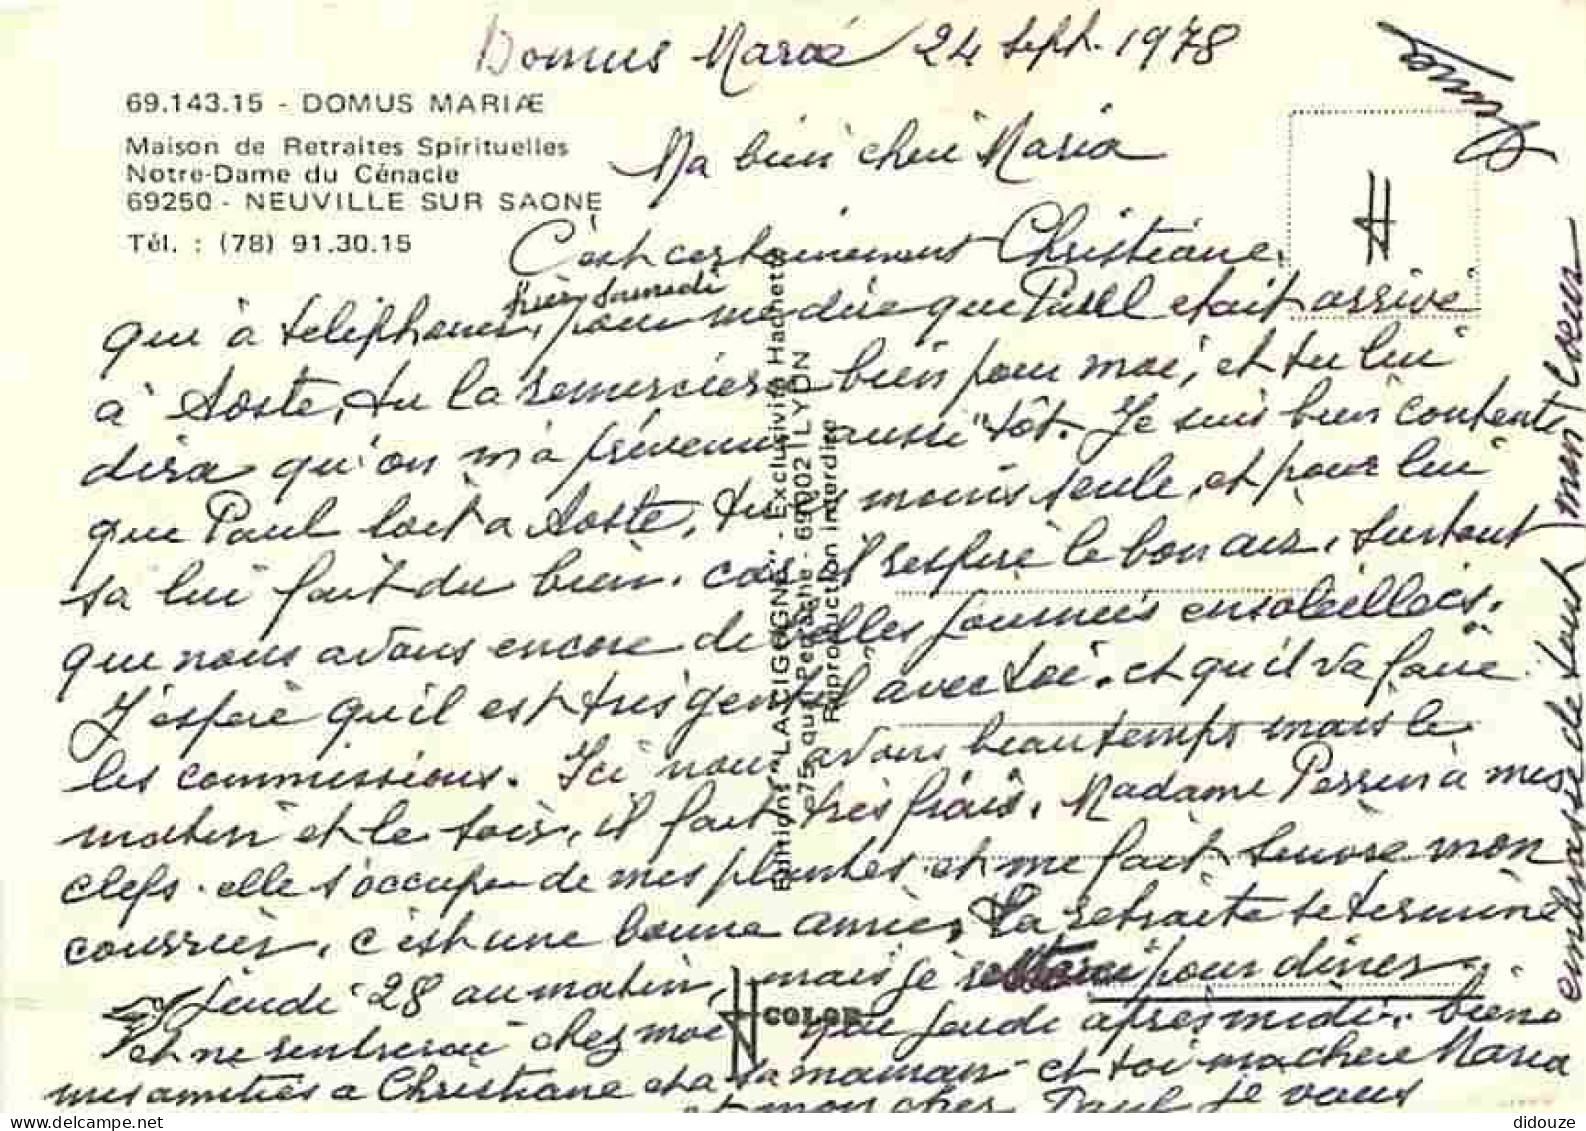 Domus Mariæ 24 Sept. 1978
69.143.15 - DOMUS MARIÆ
Maison de Retraites Spirituelles
Notre-Dame du Cénacle
69250 - NEUVILLE SUR SAONE
Tél. : (78) 91.30.15
Ma bien cheri Maria
C'est certainement Christiane,
qui à telephoner, hièr Samedi pour me dire que Paul etait arrivé
à Aoste, tu la remerciera bien pour moi, et tu lui
dira qu'on m'à prévenu aussi tôt. Je suis bien contente
que Paul soit a Aoste, tu es moins seule, et pour lui
sa lui fait du bien. car il respire le bon air, surtout
que nous avons encore de belles journeés ensoleilleés.
J'espère qu'il est très gentil avec toi. et qu'il va faire
les commissions. Ici nous avons beau temps mais le
matin et le soir, il fait très frais. Madame Perrin à mes
clefs. elle s'occupe de mes plantes et me fait suivre mon
courrier, c'est une bonne amie, La retraite se termine
Jeudi 28 au matin, mais je pour diner
et ne rentrerai chez moi que jeudi après midi. bien
mes amitiés à Christiane et a sa maman et toi ma chere Maria
et mon cher Paul je vous
embrasse de tout mon Coeur
Editions "LA CIGOGNE" - Exclusivité Hachette
75 quai Perrache - 69002 LYON
Reproduction interdite
COLOR
didouze